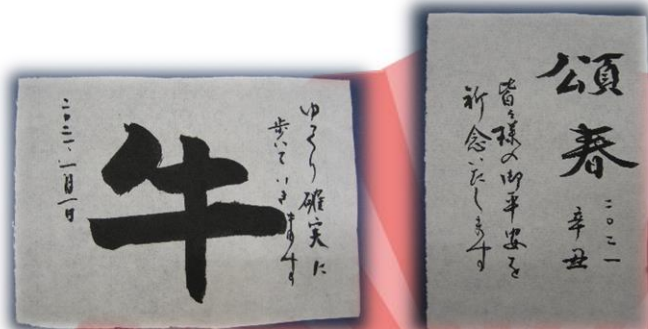 ゆっくり確実に
歩いていきます
牛
二〇二一、一月一日
頌春
二〇二一
辛丑
皆々様の御平安を
祈念いたします